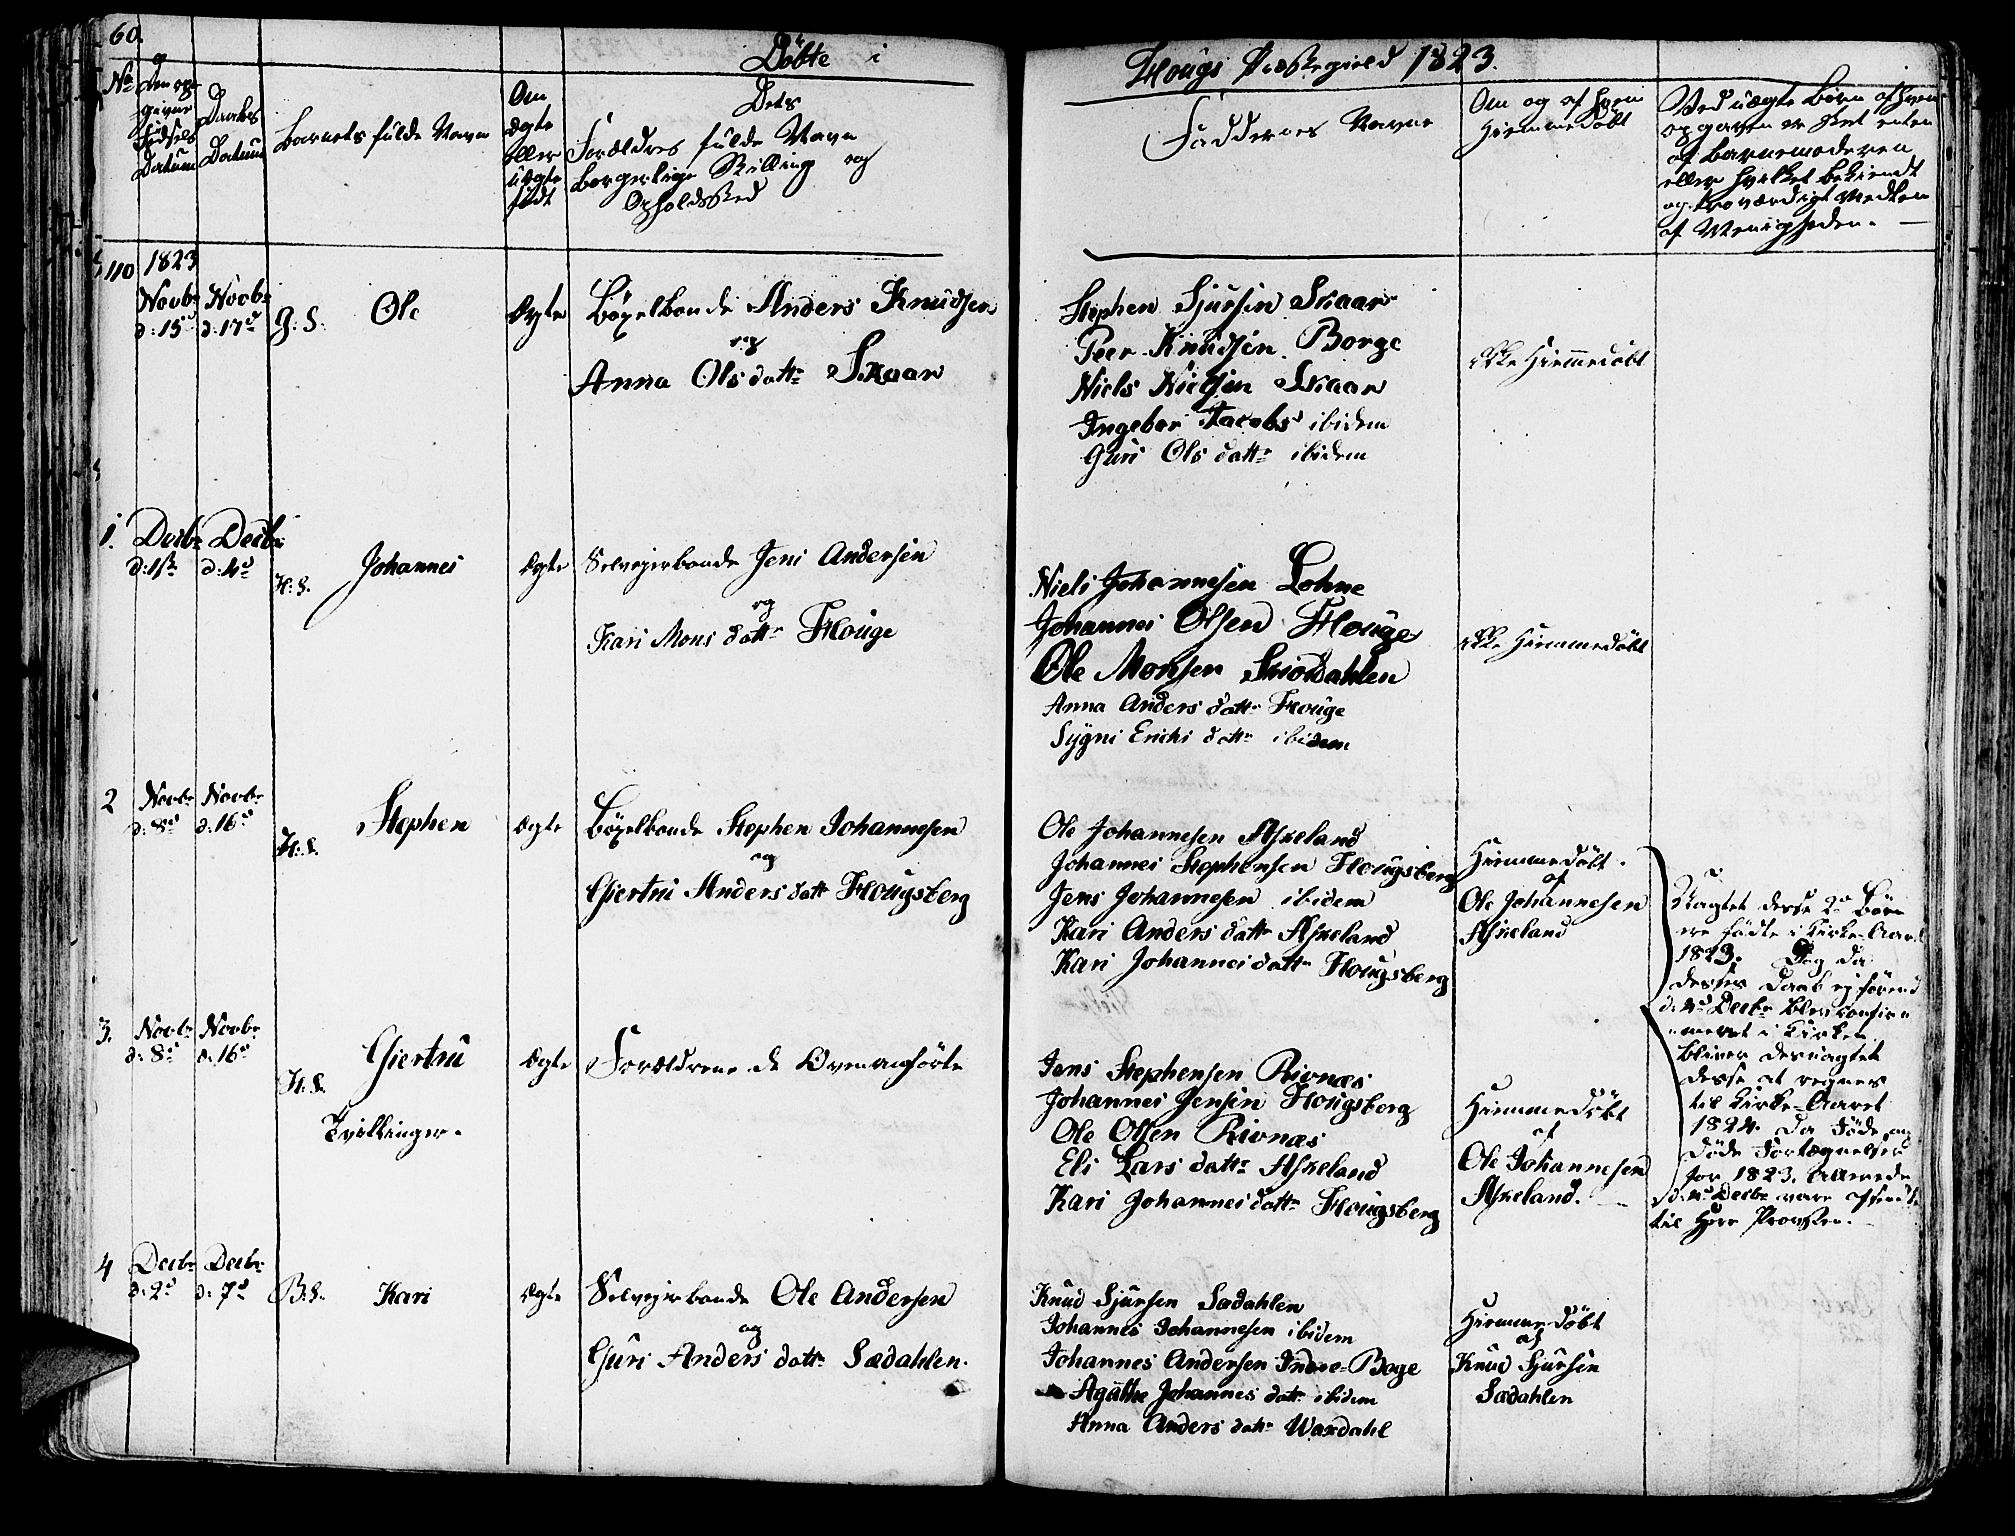 60.
Döbte i
Hougs Præstegield 1823.
No
Den op-
givne
Födsels
Datum
Daabs
Datum
Barnets fulde Navn
Om
ægte
eller
uægte
födt
Dets
Forældres fulde Navn
borgerlige Stilling og
Opholdssted
Faddernes Navne
Om og af hvem
Hiemmedöbt
Ved uægte Börn af hvem
opgaven er skeet enten
af Barnemoderen
eller hvilket bekiendt
og troværdigt Medlem
af Menigheden.
110
1823
Novbr
d: 15d
Novbr
d: 17d
G: S.
Ole
Ægte
Böxelbonde Anders Knudsen
og
Anna Olsdattr Skaar
Stephen Sjursen Skaar
Peer Knudsen Borge
Niels Nielsen Skaar
Ingebor Jacobs ibidem
Guri Olsdattr ibidem
Ikke Hiemmedöbt
1.
Decbr
d: 1ste
Decbr
d: 4d
H: S.
Johannes
Ægte
Selvejerbonde Jens Andersen
og
Kari Monsdattr Houge
Niels Johannesen Lohne
Johannes Olsen Houge
Ole Monsen Skiordahlen
Anna Andersdattr Houge
Sygni Erichsdattr ibidem
Ikke Hiemmedöbt
2
Novbr
d: 8d
Novbr
d: 16d
H: S.
Stephen
Ægte
Böxelbonde Stephen Johannesen
og
Giertru Andersdattr Hougsberg
Ole Johannesen Askeland
Johannes Stephensen Hougsberg
Jens Johannesen ibidem
Kari Andersdattr Askeland
Kari Johannesdattr Hougsberg
Hiemmedöbt
af
Ole Johannesen
Askeland
Uagtet disse 2de Börn
ere födte i Kirke-Aaret
1823. Dog da
disses Daab ej förend
d: 4d Decbr blev confir-
meret i Kirken
bliver desuagtet
disse at regnes
til Kirke-Aaret
1824. da Föde og
Döde Fortegnelser
for 1823. allerede
d: 4d Decbr vare afsendte
til Herr Provsten.
3.
Novbr
d: 8d
Novbr
d: 16d
H: S.
Giertru
Tvillinger.
Ægte
Forældrene de Ovenanförte
Jens Stephensen Rivnæs
Johannes Jensen Hougsberg
Ole Olsen Rivnæs
Eli Larsdattr Askeland
Kari Johannesdattr Hougsberg
Hiemmedöbt
af
Ole Johannesen
Askeland.
4
Decbr
d: 2d
Decbr
d: 7d
B: S.
Kari
Ægte
Selvejerbonde Ole Andersen
og
Guri Andersdattr Sædahlen.
Knud Sjursen Sædahlen
Johannes Johannesen ibidem
Johannes Andersen Indre-Boge
Agathe Johannesdattr ibidem
Anna Andersdattr Waxdahl
Hiemmedöbt
af
Knud Sjursen
Sædahlen